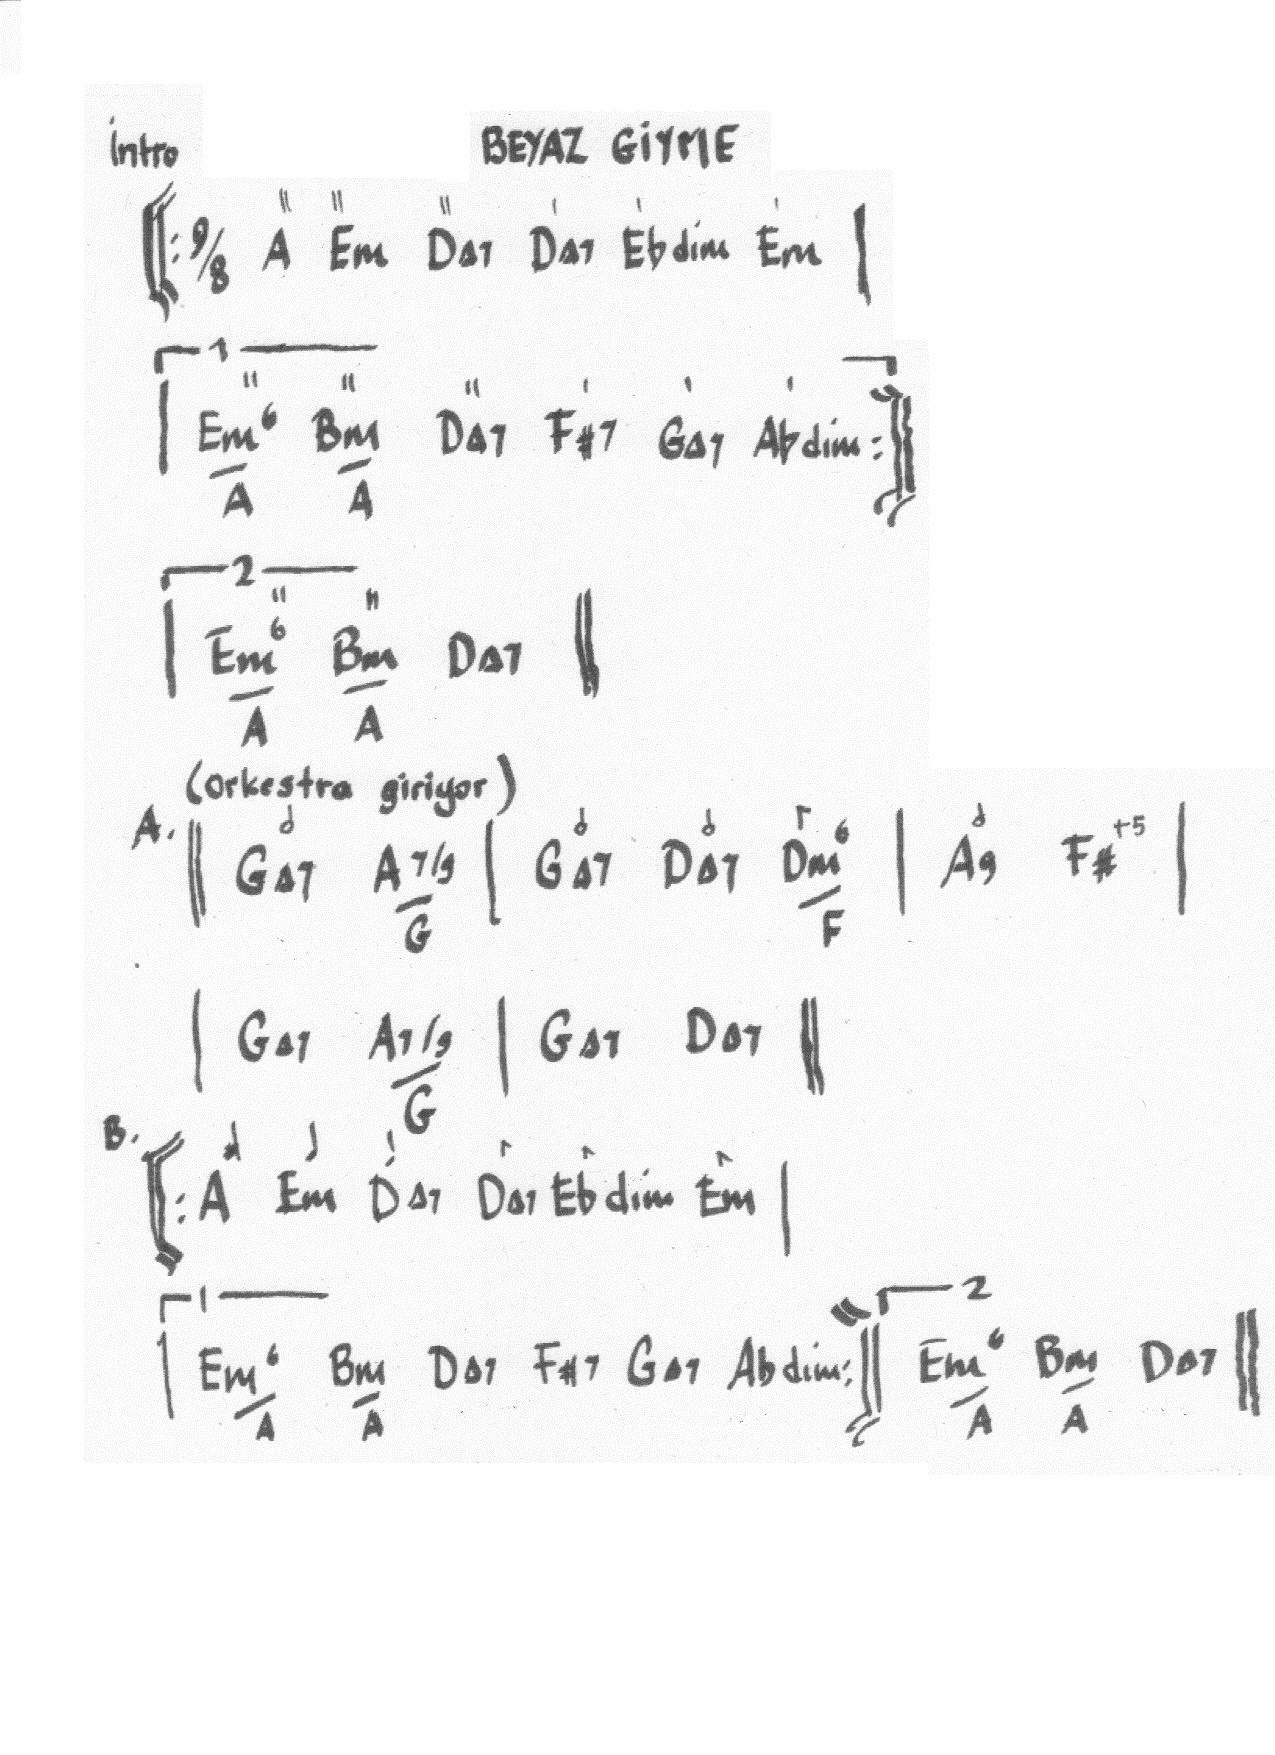 İntro BEYAZ GİYME
𝄆 9/8 A" Em" D∆7" D∆7' Ebdim' Em' |
1
| Em6/A" Bm/A" D∆7" F#7' G∆7' Abdim' 𝄇
2
| Em6/A" Bm/A" D∆7 ‖
(Orkestra giriyor)
A. ‖ G∆7 A7/9/G | G∆7 D∆7 Dm6/F | A9 F#+5 |
| G∆7 A7/9/G | G∆7 D∆7 ‖
B. 𝄆 A Em D∆7 D∆7 Ebdim Em |
1 2
| Em6/A Bm/A D∆7 F#7 G∆7 Abdim 𝄇 Em6/A Bm/A D∆7 ‖